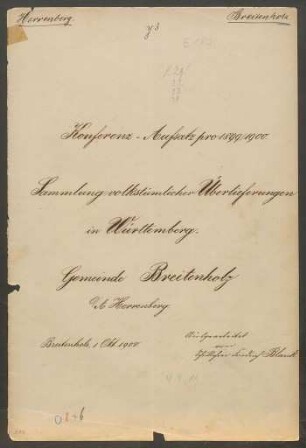 Herrenberg
Breitenholz
Konferenz-Aufsatz pro 1899/1900
Sammlung volkstümlicher Überlieferungen
in Württemberg.
Gemeinde Breitenholz
OA Herrenberg
Breitenholz, 1 Okt. 1900
Ausgearbeitet
von
Blank